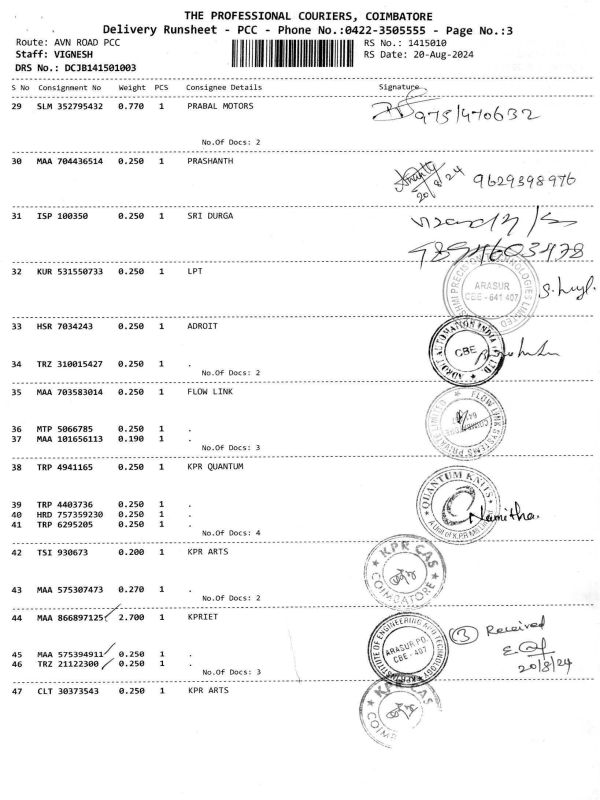 THE PROFESSIONAL COURIERS, COIMBATORE
Delivery Runsheet - PCC - Phone No.:0422-3505555 - Page No.:3
Route: AVN ROAD PCC RS No.: 1415010
Staff: VIGNESH RS Date: 20-Aug-2024
DRS No.: DCJB141501003
S No Consignment No Weight PCS Consignee Details Signature
29 SLM 352795432 0.770 1 PRABAL MOTORS
9751470632
No.Of Docs: 2
30 MAA 704436514 0.250 1 PRASHANTH
20/8/24 9629398976
31 ISP 100350 0.250 1 SRI DURGA
9894603478
32 KUR 531550733 0.250 1 LPT
ARASUR
CBE - 641 407
33 HSR 7034243 0.250 1 ADROIT
ADROIT AUTOMATION INDIA (P) LTD
CBE
34 TRZ 310015427 0.250 1 .
No.Of Docs: 2
35 MAA 703583014 0.250 1 FLOW LINK
FLOW LINK SYSTEMS PRIVATE LIMITED
36 MTP 5066785 0.250 1 .
37 MAA 101656113 0.190 1 .
No.Of Docs: 3
38 TRP 4941165 0.250 1 KPR QUANTUM
QUANTUM KNITS
Namitha.
39 TRP 4403736 0.250 1 .
40 HRD 757359230 0.250 1 .
41 TRP 6295205 0.250 1 .
No.Of Docs: 4
42 TSI 930673 0.200 1 KPR ARTS
KPR CAS
COIMBATORE
43 MAA 575307473 0.270 1 .
No.Of Docs: 2
44 MAA 866897125 2.700 1 KPRIET
KPR INSTITUTE OF ENGINEERING AND TECHNOLOGY
ARASUR PO.
CBE - 407
3 Received
20/8/24
45 MAA 575394911 0.250 1 .
46 TRZ 21122300 0.250 1 .
No.Of Docs: 3
47 CLT 30373543 0.250 1 KPR ARTS
KPR CAS